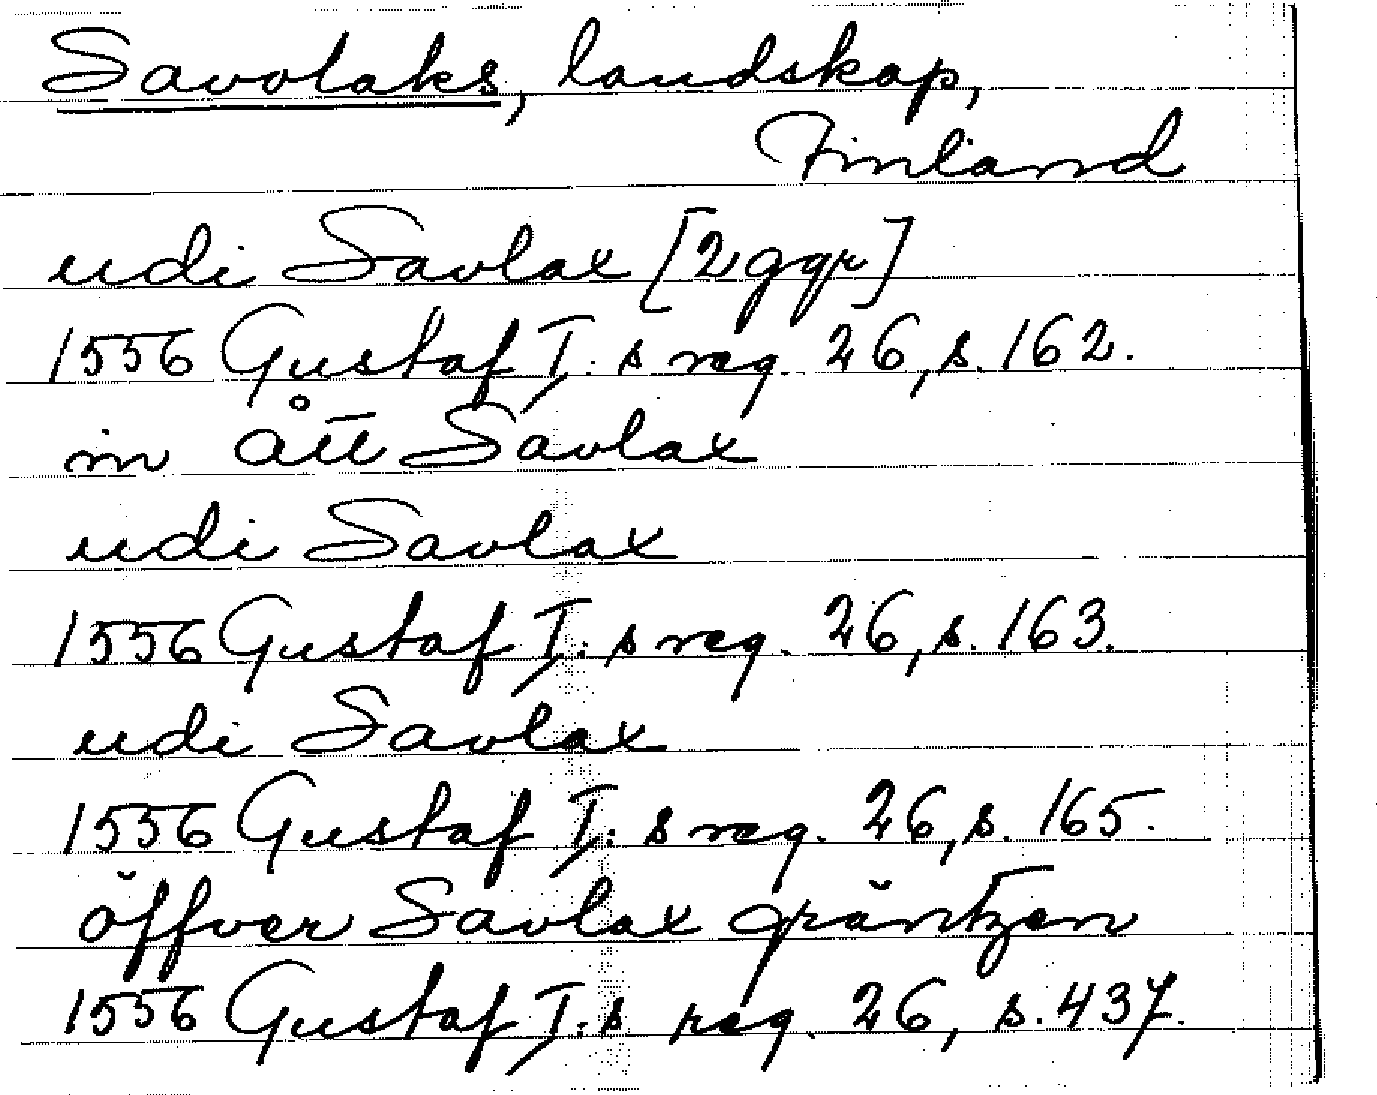 Savolaks, landskap,
Finland
udi Savlax [2 ggr]
1556 Gustaf I: s reg. 26, s. 162.
in ått Savlax
udi Savlax
1556 Gustaf I: s reg. 26, s. 163.
udi Savlax
1556 Gustaf I: s reg. 26, s. 165.
öffver Savlax gräntzen
1556 Gustaf I: s reg. 26, s. 437.